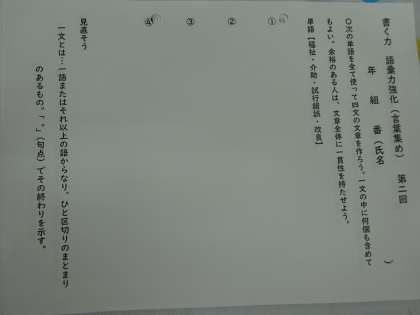 書く力 語彙力強化(言葉集め) 第二回
年 組 番(氏名 )
〇次の単語を全て使って四文の文章を作ろう。一文の中に何個も含めて
もよい。余裕のある人は、文章全体に一貫性を持たせよう。
単語【福祉・介助・試行錯誤・改良】
①
②
③
④
見直そう
一文とは…一語またはそれ以上の語からなり、ひと区切りのまとまり
のあるもの。「。」(句点)でその終わりを示す。